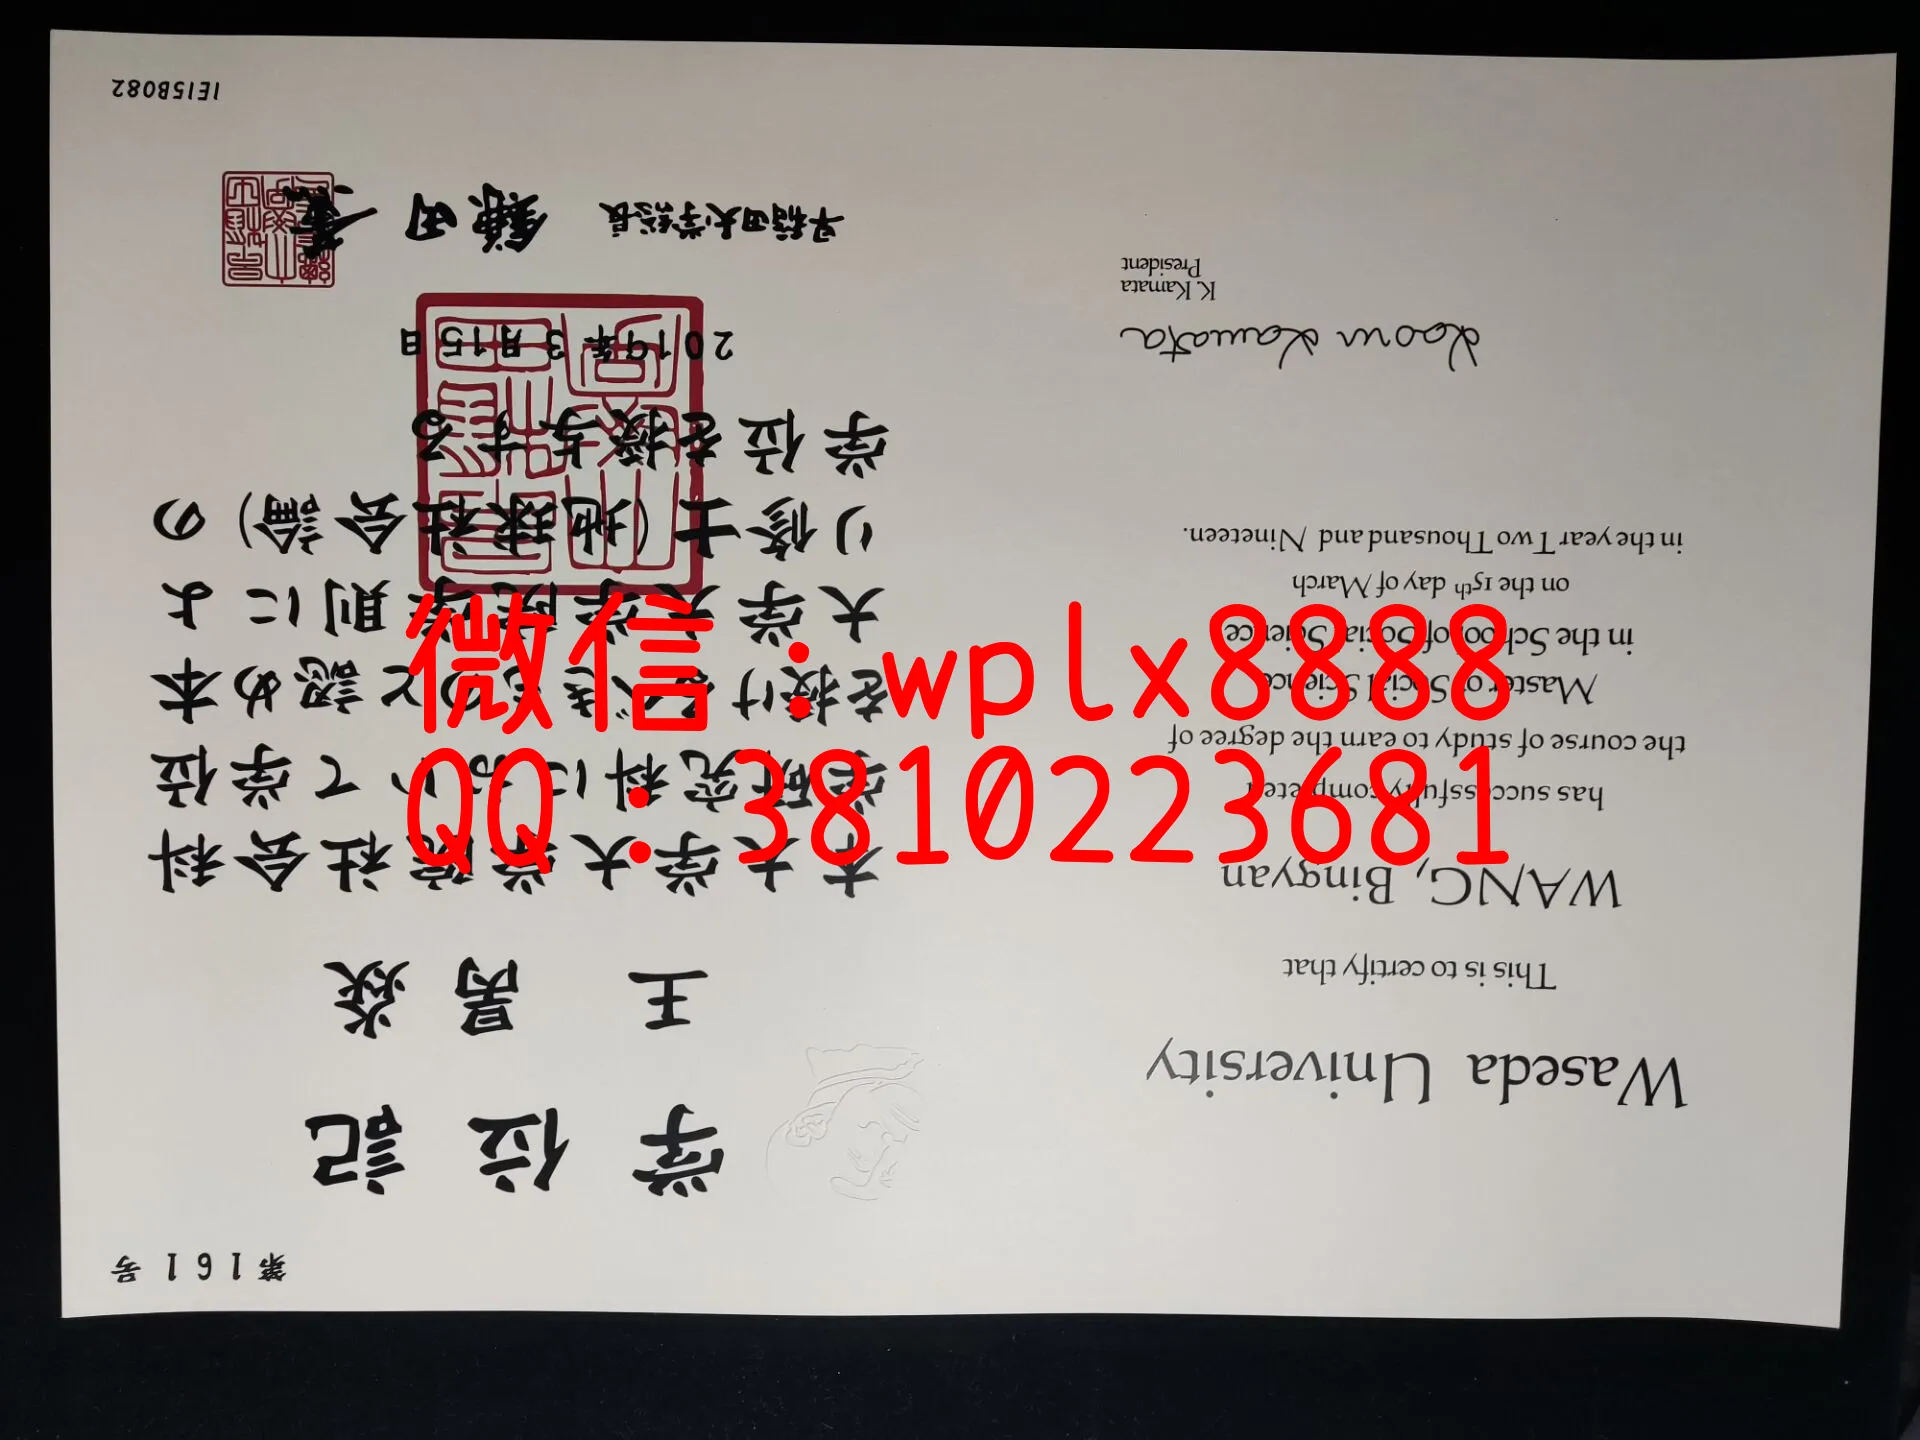 微信:wplx8888
QQ:3810223681
第161号
学位記
王昺焱
本大学大学院社会科
学研究科において学位
を授けるべきものと認め本
大学大学院学則によ
り修士(地球社会論)の
学位を授与する
2019年3月15日
早稲田大学総長 鎌田 薫
1E15B082
Waseda University
This is to certify that
WANG, Bingyan
has successfully completed
the course of study to earn the degree of
Master of Social Science
in the School of Social Science
on the 15th day of March
in the year Two Thousand and Nineteen.
Kaoru Kamata
K. Kamata
President